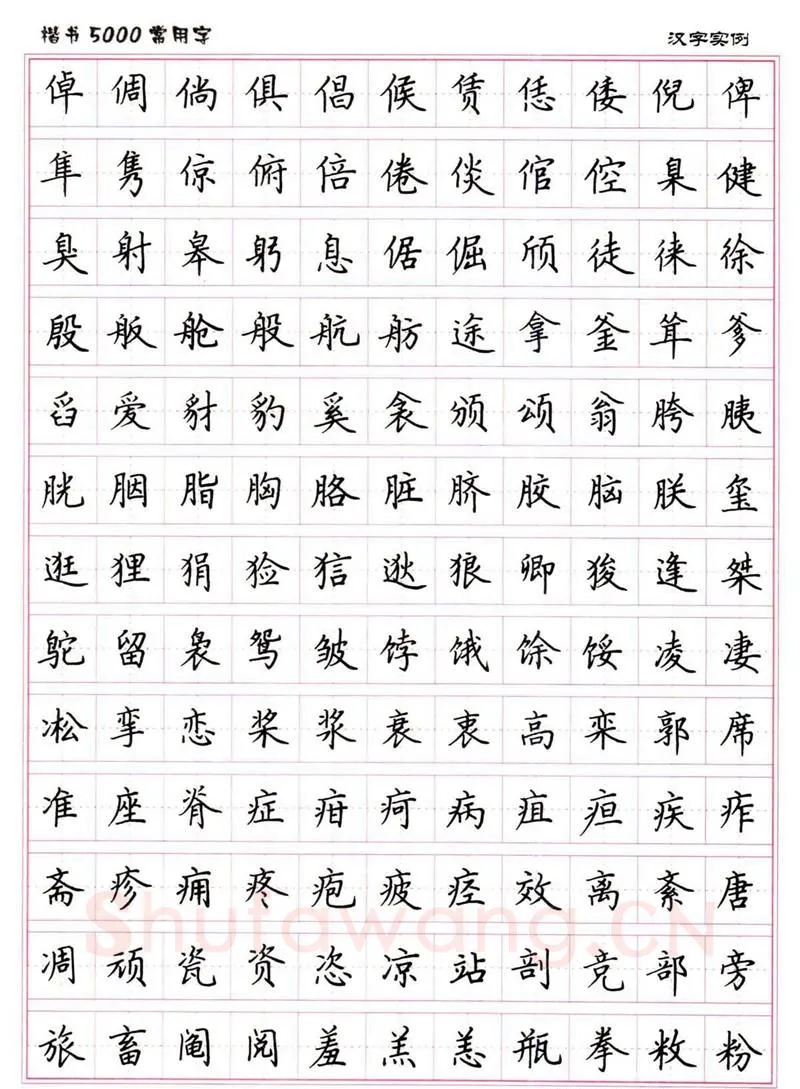 楷书5000常用字 汉字实例
倬 倜 倘 俱 倡 候 赁 恁 倭 倪 俾
隼 隽 倞 俯 倍 倦 倓 倌 倥 臬 健
臭 射 皋 躬 息 倨 倔 颀 徒 徕 徐
殷 舨 舱 般 航 舫 途 拿 釜 耸 爹
舀 爱 豺 豹 奚 衾 颁 颂 翁 胯 胰
胱 胭 脂 胸 胳 脏 脐 胶 脑 朕 玺
逛 狸 狷 猃 狺 逖 狼 卿 狻 逢 桀
鸵 留 袅 鸳 皱 饽 饿 馀 馁 凌 凄
凇 挛 恋 桨 浆 衰 衷 高 栾 郭 席
准 座 脊 症 疳 疴 病 疽 疸 疾 痄
斋 疹 痈 疼 疱 疲 痉 效 离 紊 唐
凋 颃 瓷 资 恣 凉 站 剖 竞 部 旁
旅 畜 阄 阅 羞 羔 恙 瓶 拳 敉 粉
Shufawang.CN